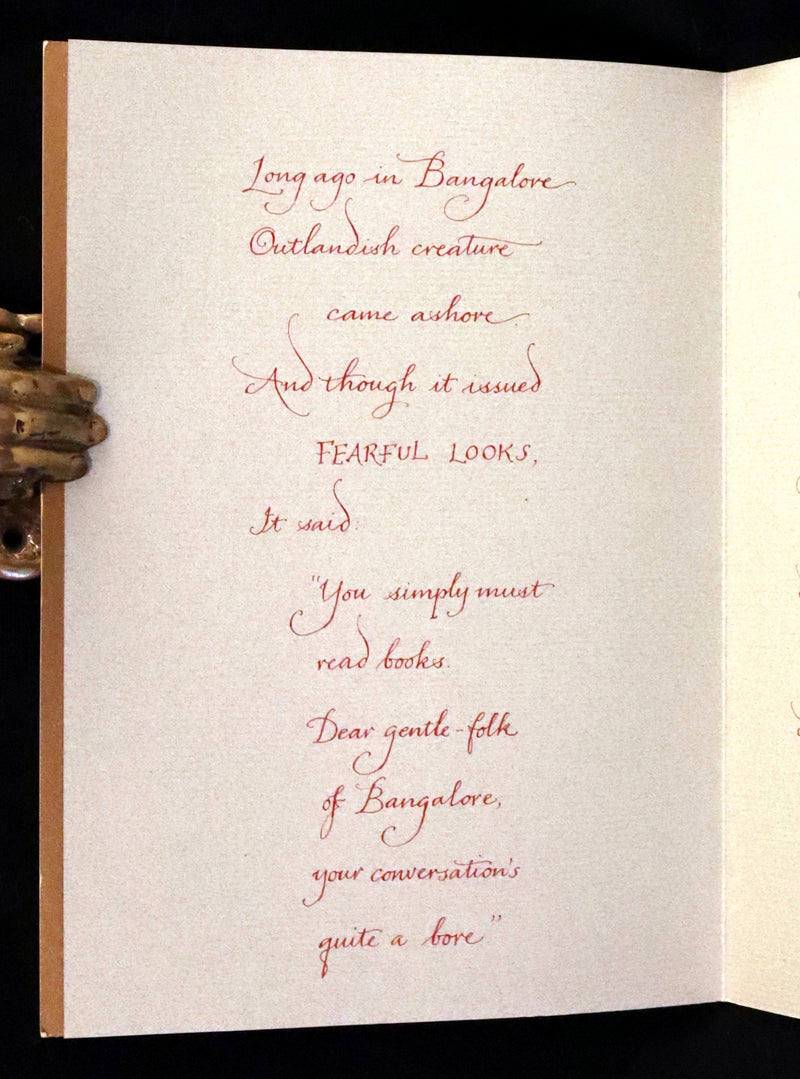 Long ago in Bangalore
Outlandish creature
came ashore.
And though it issued
FEARFUL LOOKS,
It said:
"You simply must
read books.
Dear gentle-folk
of Bangalore,
your conversation's
quite a bore"